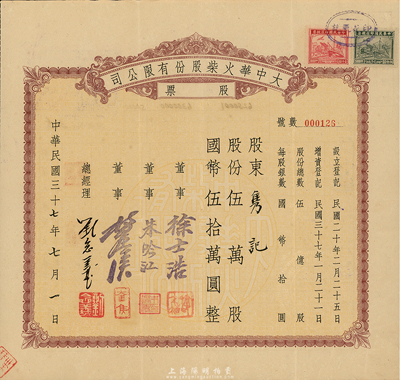 司公限有份股柴火華中大
票　股
號數 000128
設立登記　民國二十年二月二十五日
增資登記　民國三十七年一月二十一日
股份總數　伍億股
每股銀數　國幣拾圓
股東　雋記
股份伍萬股
國幣伍拾萬圓整
董事　徐士浩
董事　朱吟江
董事
總經理
中華民國三十七年七月一日
上海陽明拍賣